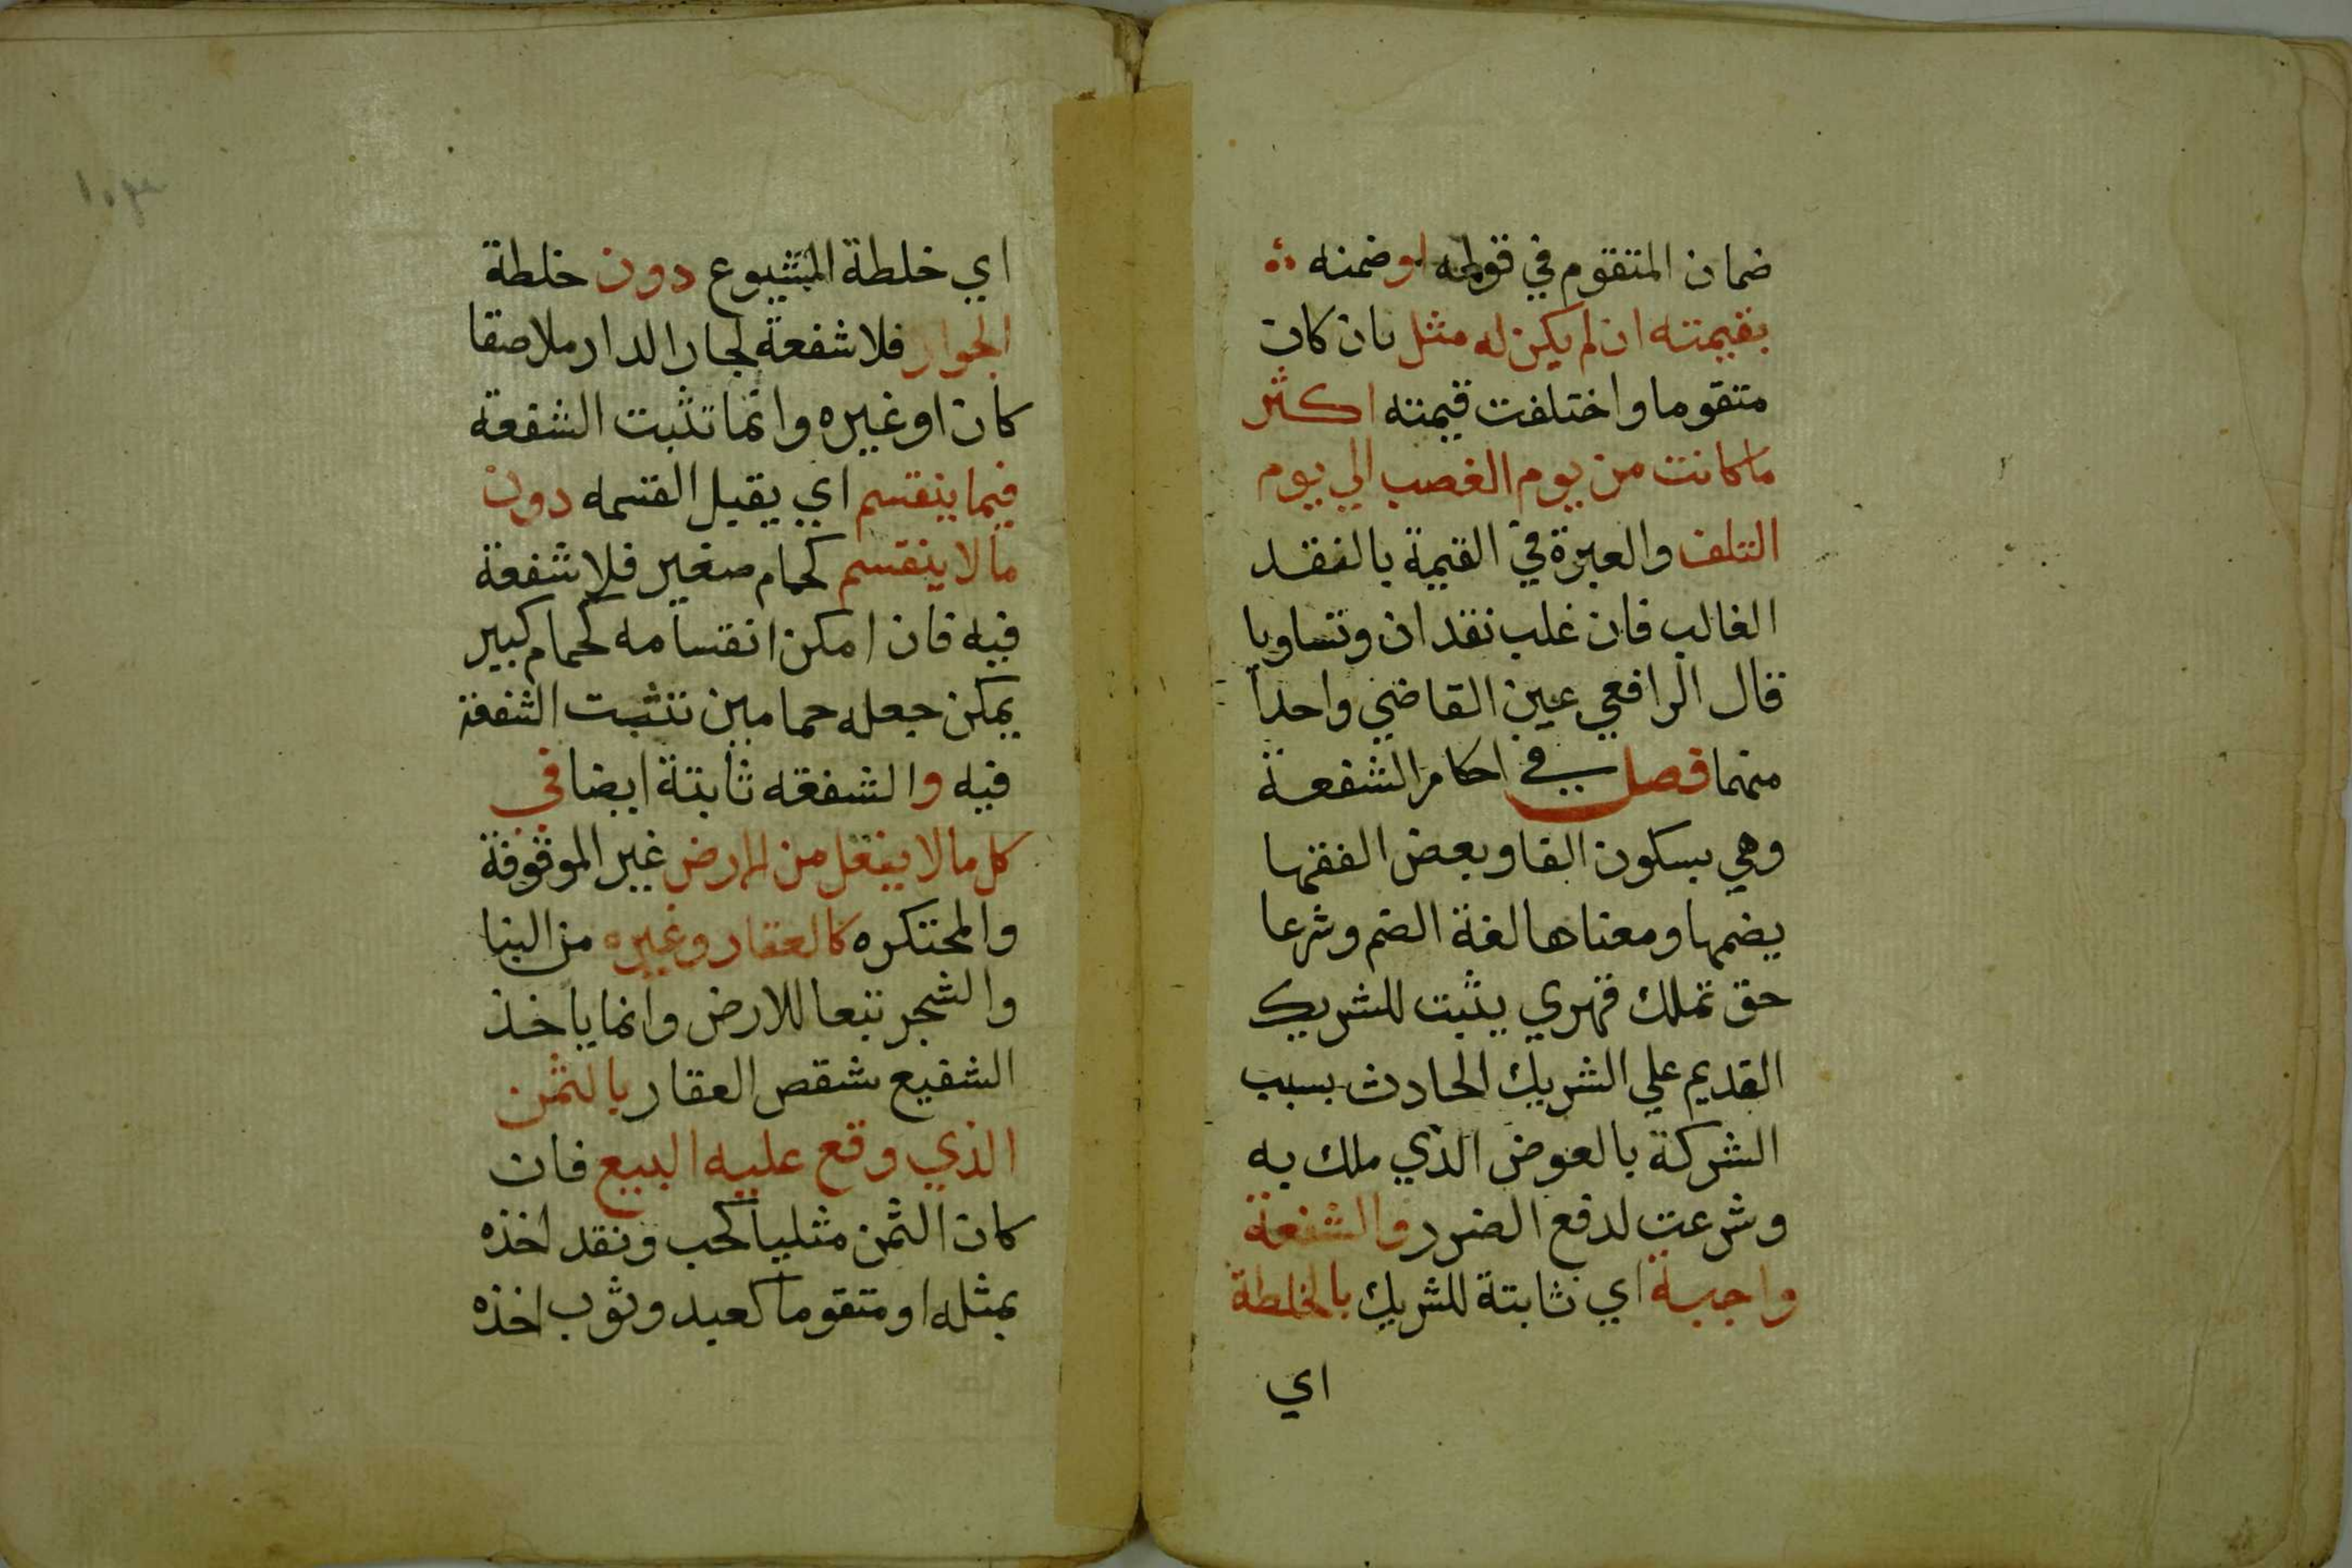 ضمان المتقوم في قوله او ضمنه
بقيمته ان لم يكن له مثل بان كان
متقوما واختلفت قيمته اكثر
ما كانت من يوم الغصب الي يوم
التلف والعبرة في القيمة بالنقد
الغالب فان غلب نقدان وتساويا
قال الرافعي عين القاضي واحدا
منهما فصل في احكام الشفعة
وهي بسكون الفا وبعض الفقها
يضمها ومعناها لغة الضم وشرعا
حق تملك قهري يثبت للشريك
القديم علي الشريك الحادث بسبب
الشركة بالعوض الذي ملك به
وشرعت لدفع الضرر والشفعة
واجبة اي ثابتة للشريك بالخلطة
اي
اي خلطة الشيوع دون خلطة
الجوار فلا شفعة لجار الدار ملاصقا
كان او غيره وانما تثبت الشفعة
فيما ينقسم اي يقبل القسمه دون
ما لا ينقسم كحمام صغير فلا شفعة
فيه فان امكن انقسامه كحمام كبير
يمكن جعله حمامين تثبت الشفعة
فيه والشفعه ثابتة ايضا في
كل ما لا ينقل من الارض غير الموقوفة
والمحتكره كالعقار وغيره من البنا
والشجر تبعا للارض وانما ياخذ
الشفيع شقص العقار بالثمن
الذي وقع عليه البيع فان
كان الثمن مثليا كحب ونقد اخذه
بمثله او متقوما كعبد وثوب اخذه